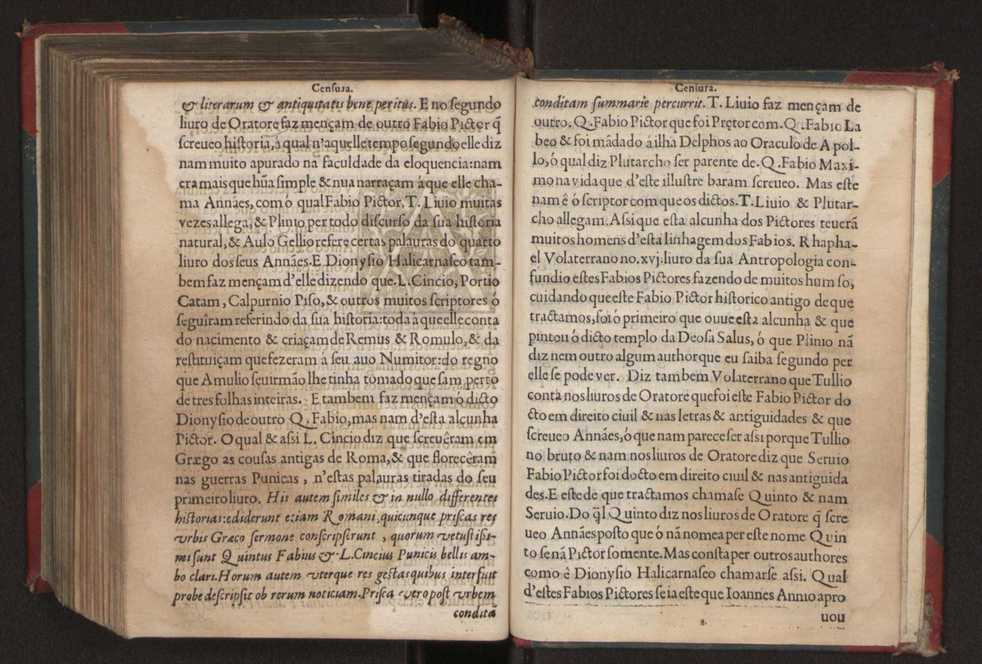 Censura.
& literarum & antiquitatis bene peritus. E no segundo
liuro de Oratore faz mençam de outro Fabio Pictor q̃
screueo historia, à qual n'aquelle tempo segundo elle diz
nam muito apurado na faculdade da eloquencia: nam
era mais que hũa simple & nua narraçam à que elle cha-
ma Annães, com ó qual Fabio Pictor, T. Liuio muitas
vezes allega, & Plinio per todo discurso da sua historia
natural, & Aulo Gellio refere certas palauras do quarto
liuro dos seus Annães. E Dionysio Halicarnaseo tam-
bem faz mençam d'elle dizendo que. L. Cincio, Portio
Catam, Calpurnio Piso, & outros muitos scriptores ó
seguîram referindo da sua historia: toda aquelle conta
do nacimento & criaçam de Remus & Romulo, & da
restituiçam que fezeram á seu auo Numitor: do regno
que Amulio seu irmão lhe tinha tomado que sam perto
de tres folhas inteiras. E tambem faz mençam ó dicto
Dionysio de outro Q. Fabio, mas nam d'esta alcunha
Pictor. O qual & assi L. Cincio diz que screuêram em
Græco as cousas antigas de Roma, & que florecêram
nas guerras Punicas, n'estas palauras tiradas do seu
primeiro liuro. His autem similes & in nullo differentes
historias: ediderunt eziam Romani, quicunque priscas res
vrbis Græco sermone conscripserunt, quorum vetustissi-
mi sunt Quintus Fabius & L. Cincius Punicis bellis am-
bo clari. Horum autem vterque res gestas quibus interfuit
probe descripsit ob rerum noticiam. Prisca vero post vrbem
condita
Censura.
conditam summarie percurrit. T. Liuio faz mençam de
outro. Q. Fabio Pictor que foi Pretor com. Q. Fabio La
beo & foi mãdado à ilha Delphos ao Oraculo de Apol-
lo, ó qual diz Plutarcho ser parente de. Q. Fabio Maxi-
mo na vida que d'este illustre baram screueo. Mas este
nam ê ó scriptor com que os dictos. T. Liuio & Plutar-
cho allegam. Assi que esta alcunha dos Pictores teuerã
muitos homens d'esta linhagem dos Fabios. Rhapha-
el Volaterrano no. xvj. liuro da sua Antropologia con-
fundio estes Fabios Pictores fazendo de muitos hum so,
cuidando que este Fabio Pictor historico antigo de que
tractamos, foi ó primeiro que ouue esta alcunha & que
pintou ó dicto templo da Deosa Salus, ó que Plinio nã
diz nem outro algum author que eu saiba segundo per
elle se pode ver. Diz tambem Volaterrano que Tullio
conta nos liuros de Oratore que foi este Fabio Pictor do
cto em direito ciuil & nas letras & antiguidades & que
screueo Annães, ó que nam parece ser assi porque Tullio
no bruto & nam nos liuros de Oratore diz que Seruio
Fabio Pictor foi docto em direito ciuil & nas antiguida
des. E este de que tractamos chamase Quinto & nam
Seruio. Do q̃l Quinto diz nos liuros de Oratore q̃ scre
ueo Annães posto que ó nã nomea per este nome Quin
to senã Pictor somente. Mas consta per outros authores
como ê Dionysio Halicarnaseo chamarse assi. Qual
d'estes Fabios Pictores seia este que Ioannes Annio apro
uou